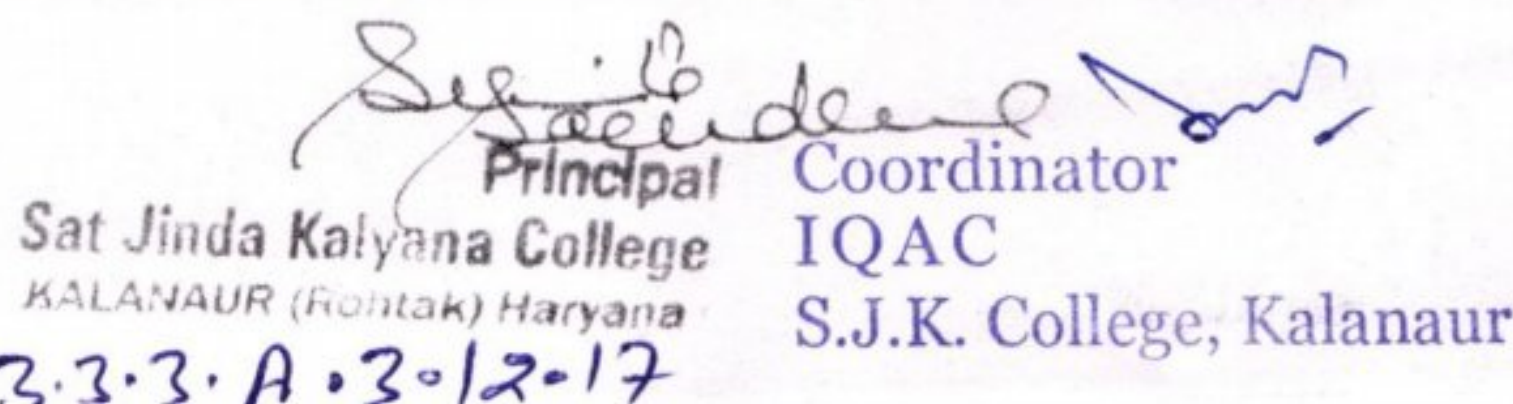 Principal
Sat Jinda Kalyana College
KALANAUR (Rohtak) Haryana
3.3.3.A.3.12.17
Coordinator
IQAC
S.J.K. College, Kalanaur